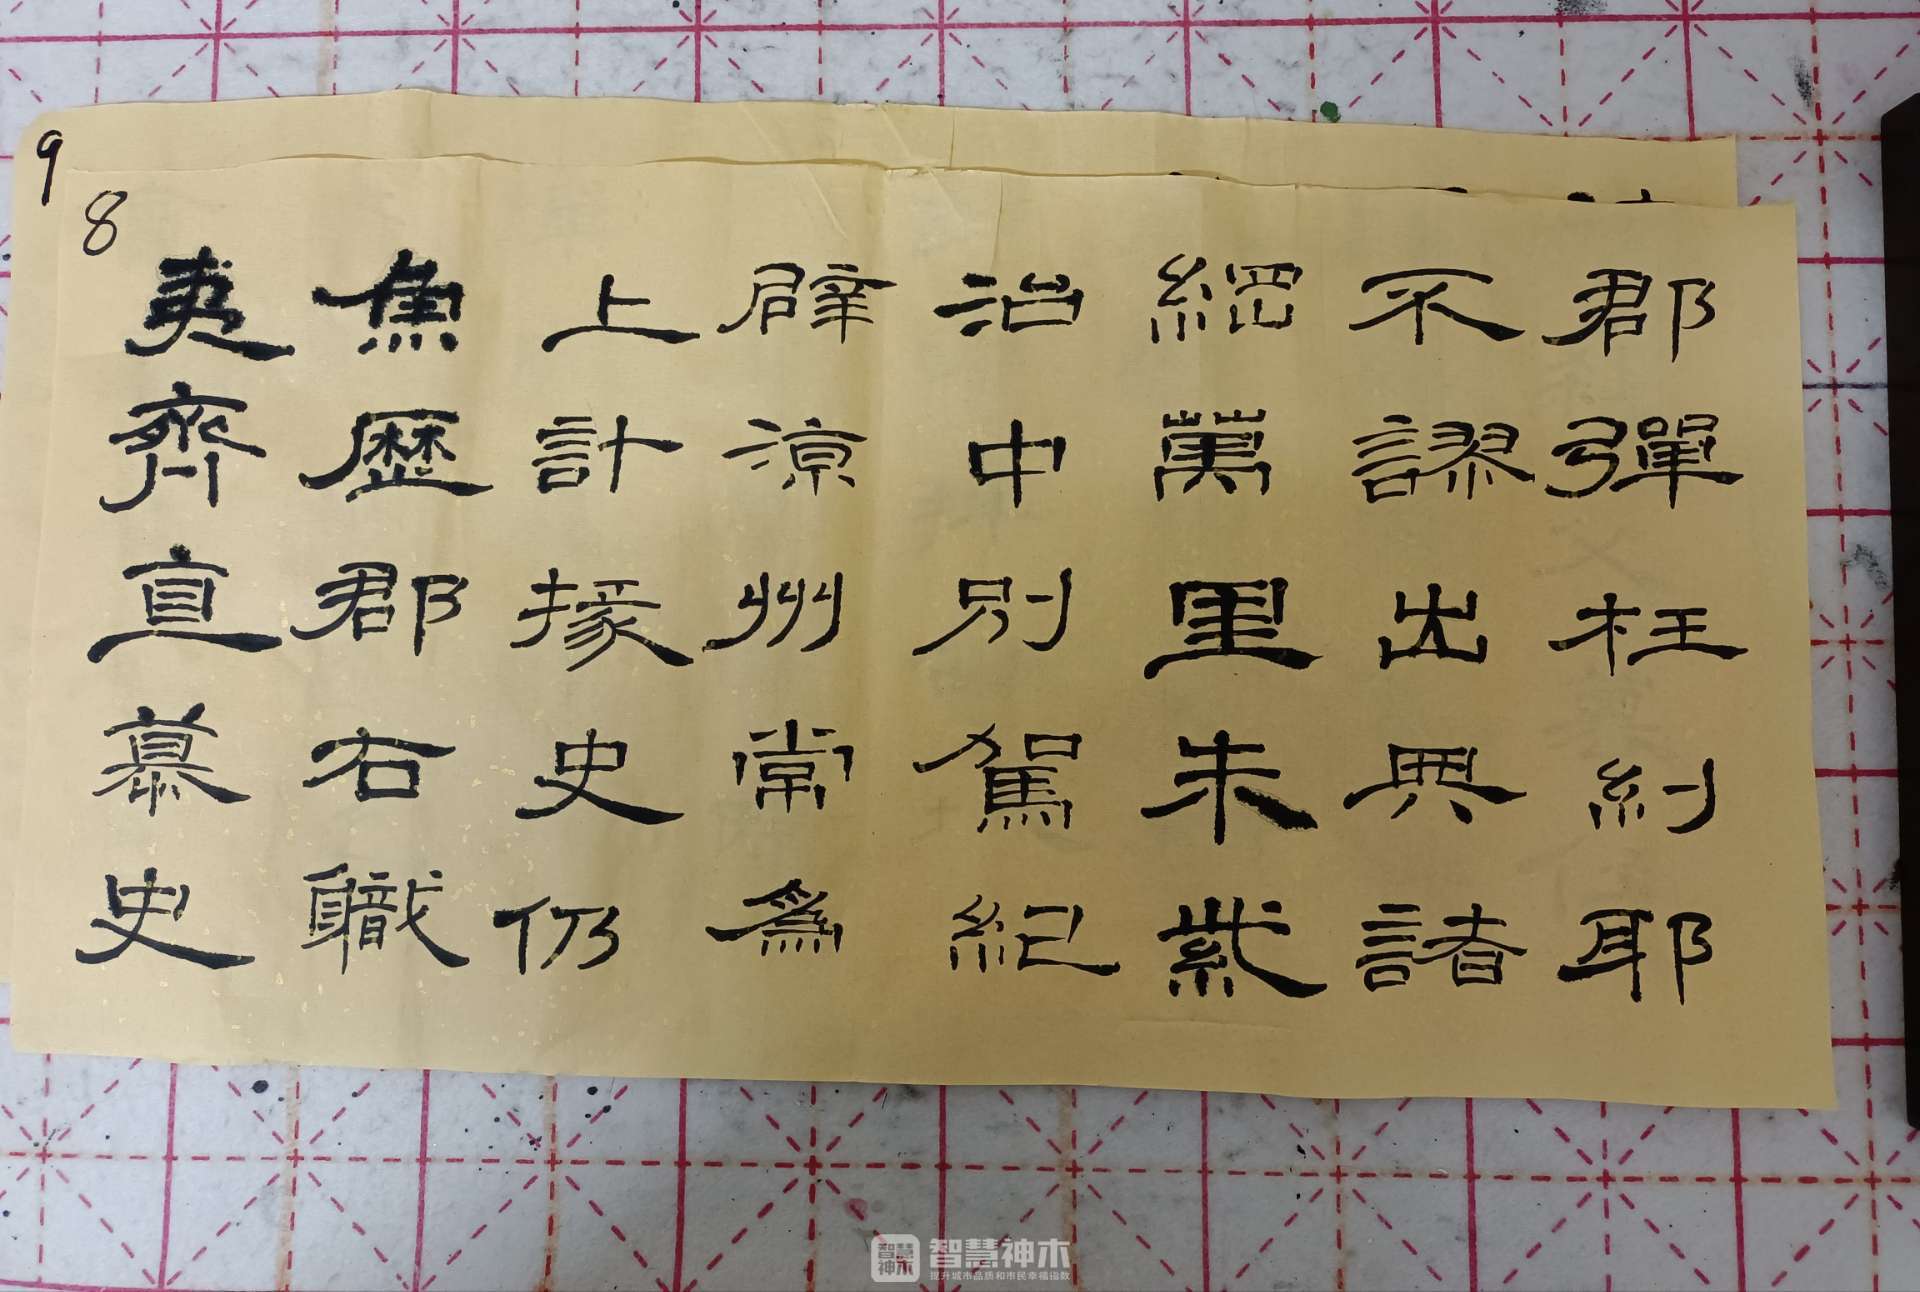 9
8
夷齊直慕史
魚歷郡右職
上計掾史仍
辟涼州常爲
治中別駕紀
綱萬里朱紫
不謬出典諸
郡彈枉糾耶
智慧神木
智慧神木
提升城市品质和市民幸福指数